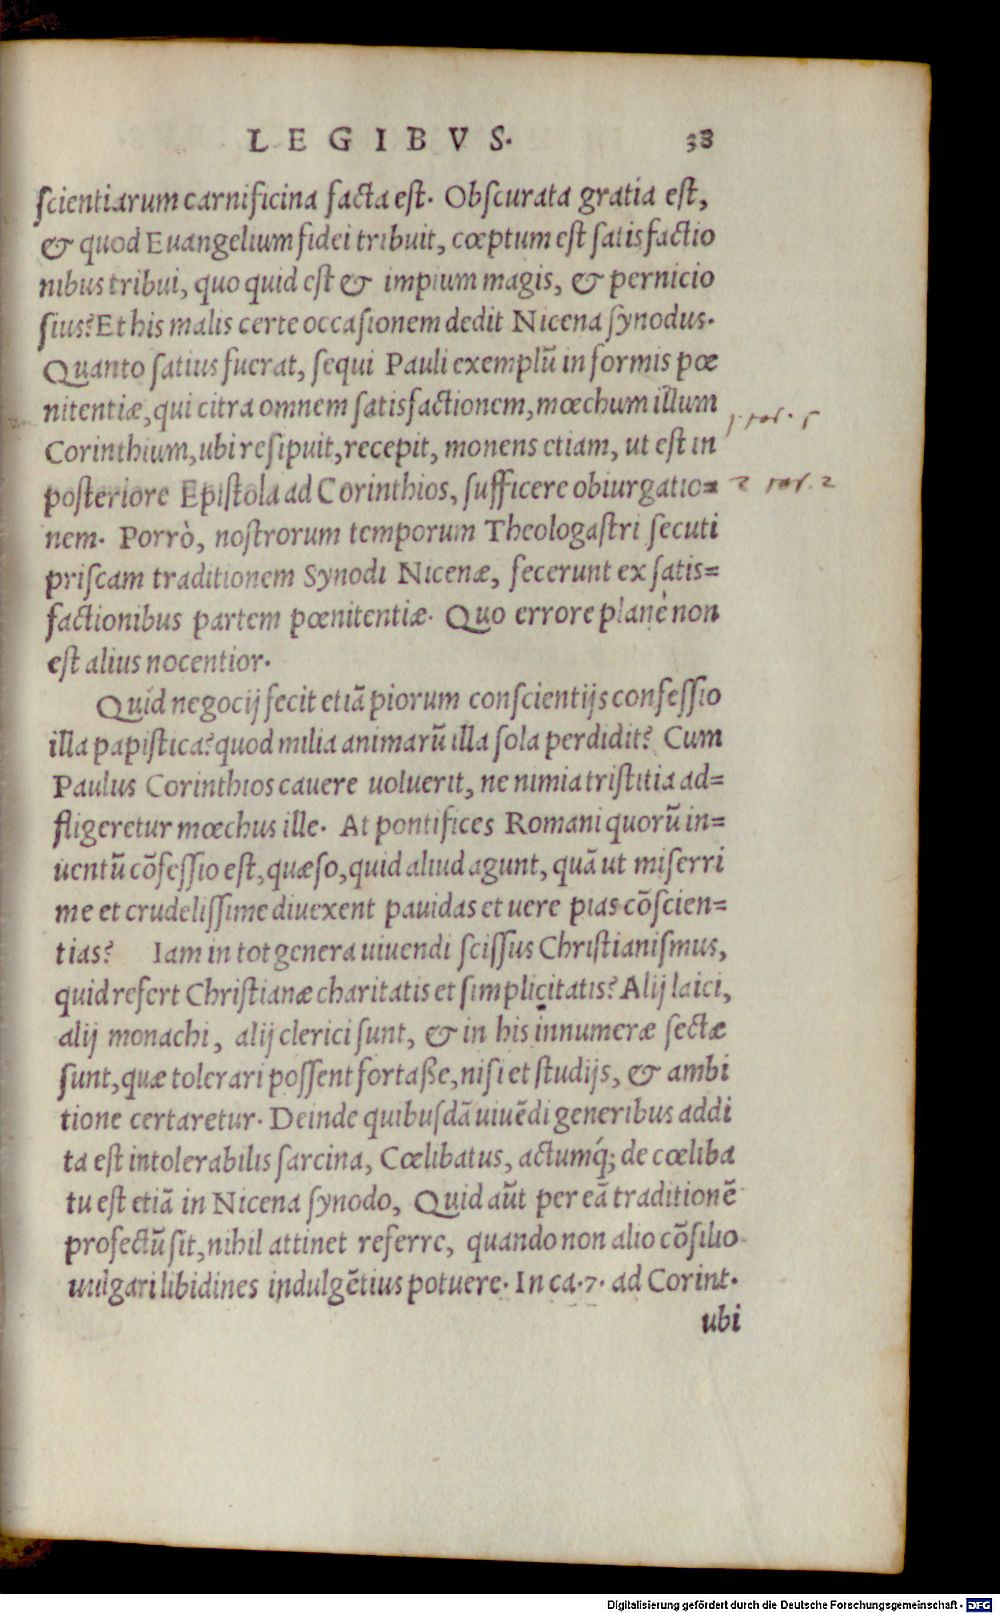 LEGIBVS. 38
scientiarum carnificina facta est. Obscurata gratia est,
& quod Euangelium fidei tribuit, cœptum est satisfactio
nibus tribui, quo quid est & impium magis, & pernicio
sius? Et his malis certe occasionem dedit Nicena synodus.
Quanto satius fuerat, sequi Pauli exemplū in formis pœ
nitentiæ, qui citra omnem satisfactionem, mœchum illum
Corinthium, ubi resipuit, recepit, monens etiam, ut est in
posteriore Epistola ad Corinthios, sufficere obiurgatio=
nem. Porrò, nostrorum temporum Theologastri secuti
priscam traditionem Synodi Nicenæ, fecerunt ex satis=
factionibus partem pœnitentiæ. Quo errore planè non
est alius nocentior.
Quid negocij fecit etiā piorum conscientijs confessio
illa papistica? quod milia animarū illa sola perdidit? Cum
Paulus Corinthios cauere uoluerit, ne nimia tristitia ad=
fligeretur mœchus ille. At pontifices Romani quorū in=
uentū cōfessio est, quæso, quid aliud agunt, quā ut miserri
me et crudelissime diuexent pauidas et uere pias cōscien=
tias? Iam in tot genera uiuendi scissus Christianismus,
quid refert Christianæ charitatis et simplicitatis? Alij laici,
alij monachi, alij clerici sunt, & in his innumeræ sectæ
sunt, quæ tolerari possent fortaße, nisi et studijs, & ambi
tione certaretur. Deinde quibusdā uiuēdi generibus addi
ta est intolerabilis sarcina, Cœlibatus, actumq́; de cœliba
tu est etiā in Nicena synodo, Quid aūt per eā traditionē
profectū sit, nihil attinet referre, quando non alio cōsilio
uulgari libidines indulgētius potuere. In ca. 7. ad Corint.
ubi
Digitalisierung gefördert durch die Deutsche Forschungsgemeinschaft - DFG